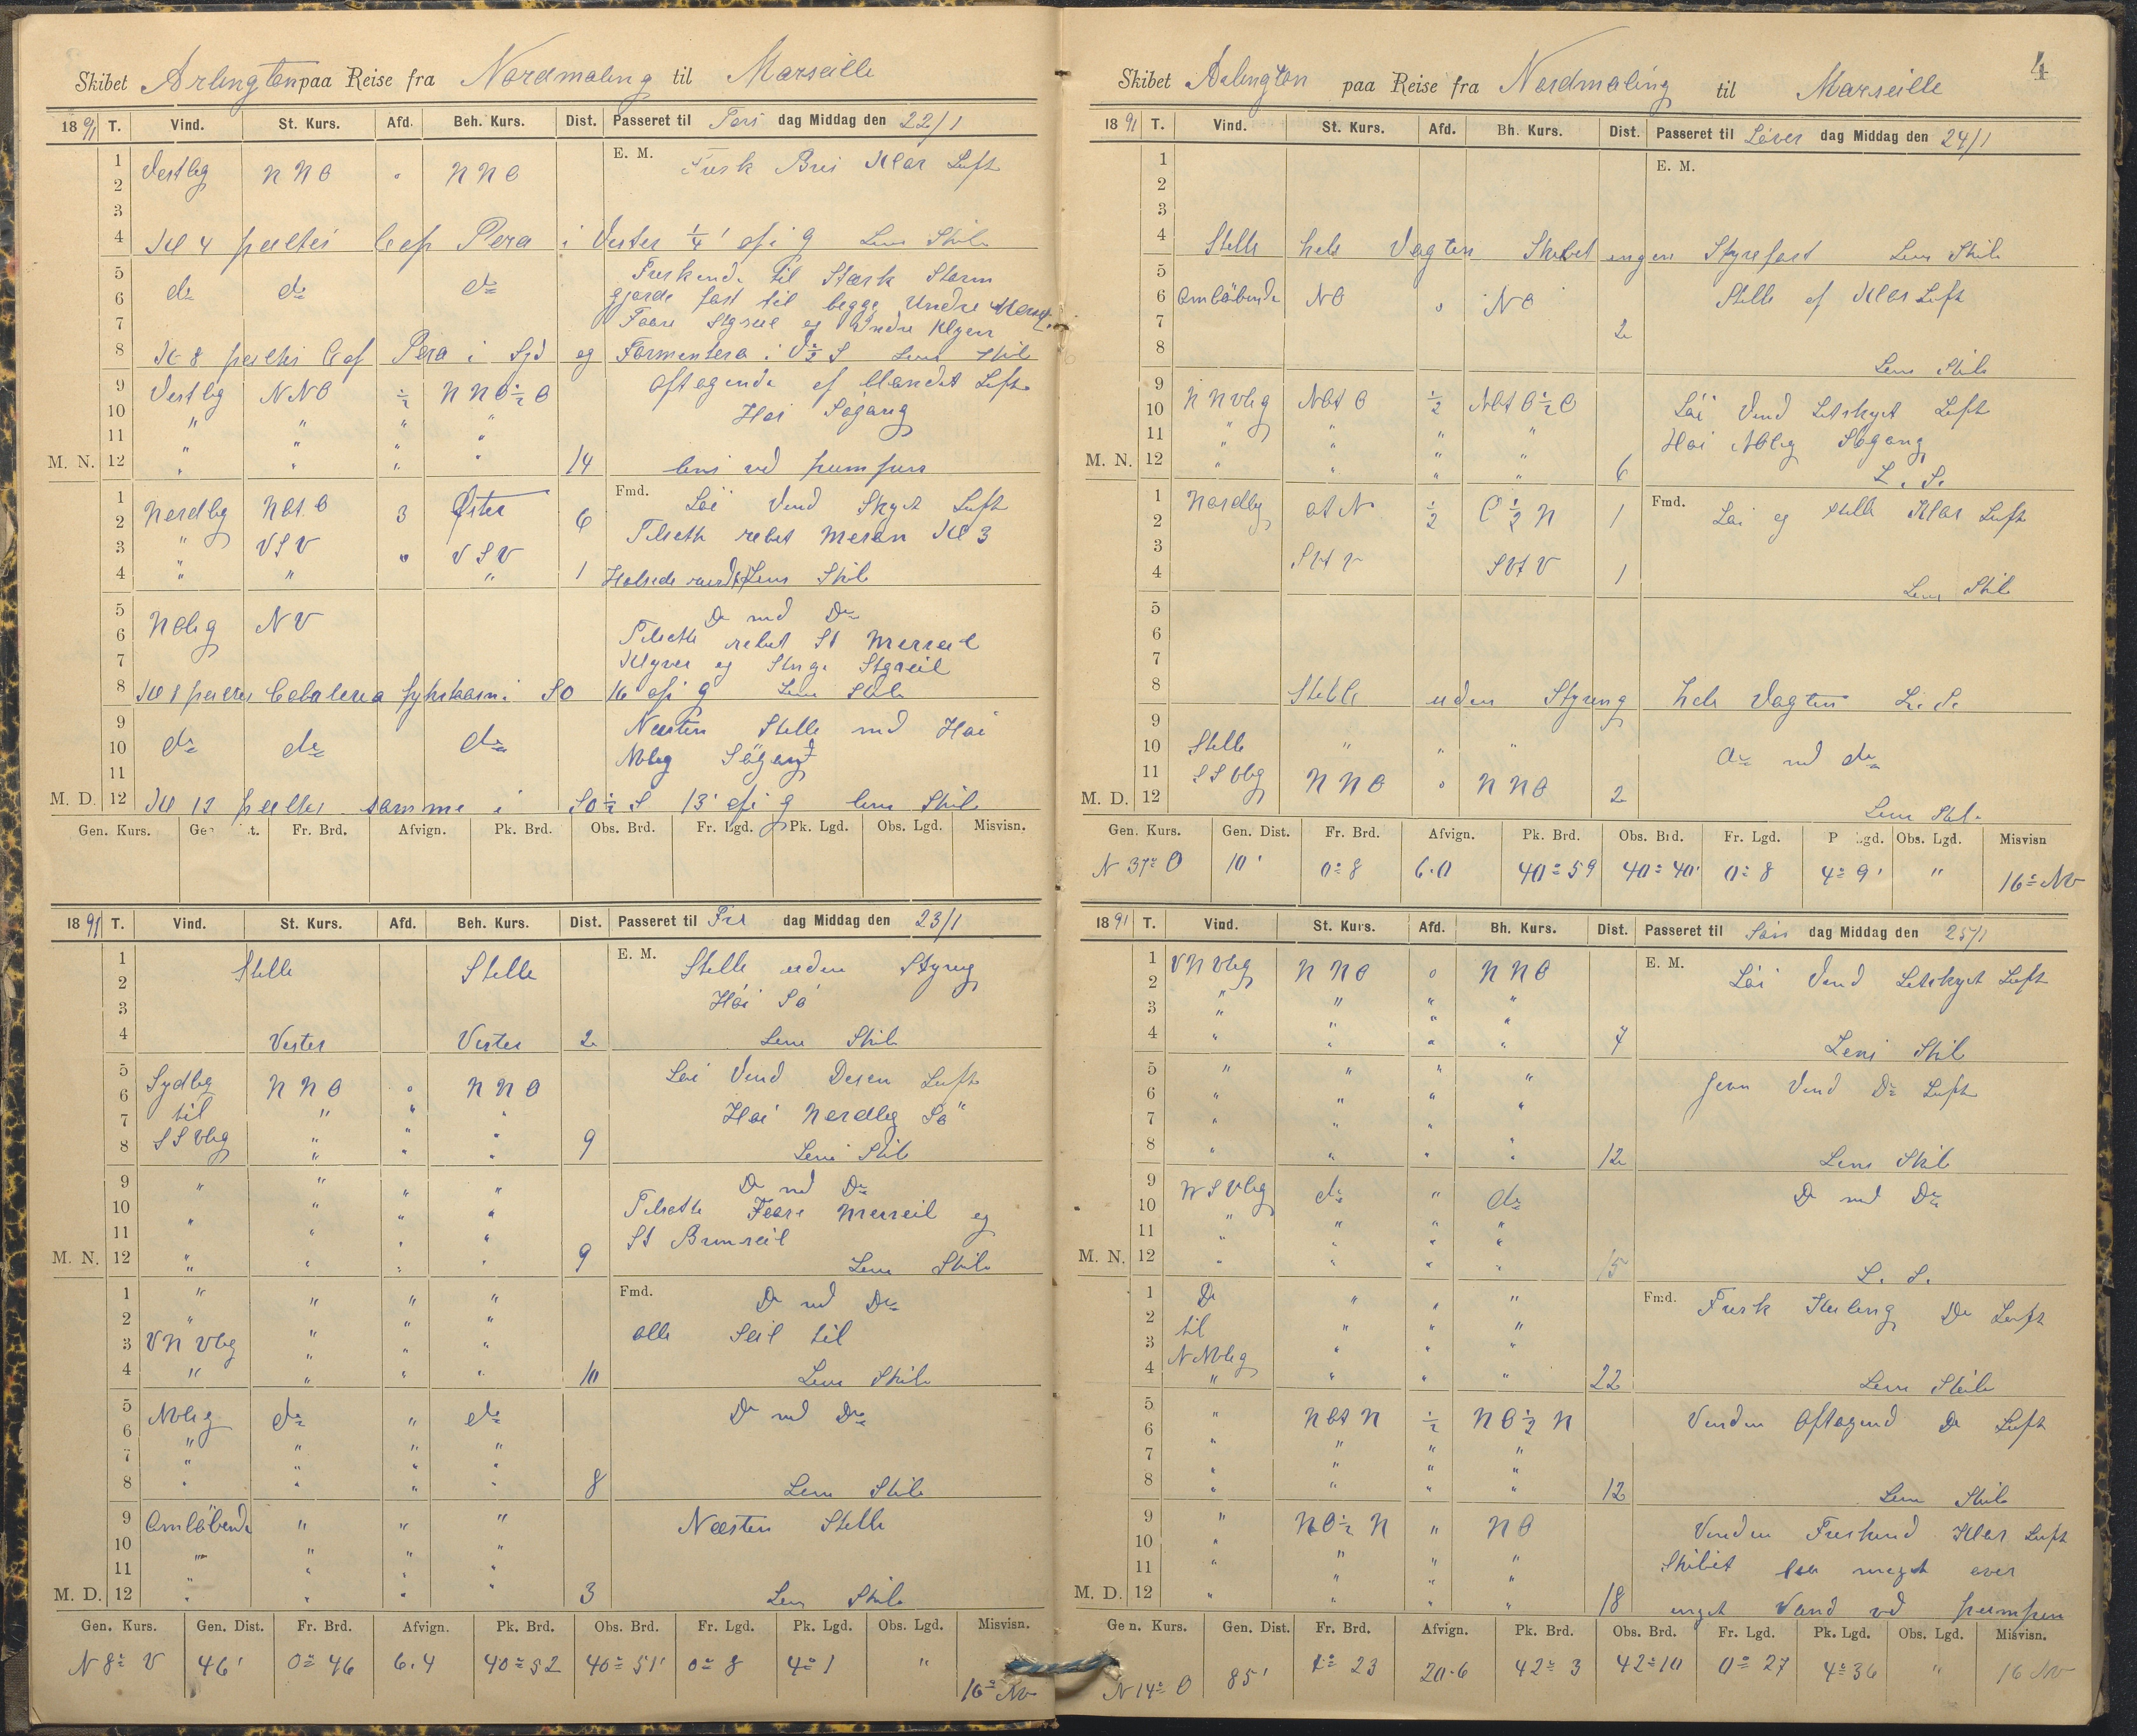 Skibet Arlington paa Reise fra Nordmaling til Marseille
18 91 T. Vind. St. Kurs. Afd. Beh. Kurs. Dist. Passeret til Tors dag Middag den 22/1
E. M.
1 Vestlig NNO " NNO Frisk Bris Klar Luft
2
3
4 Kl 4 peiltes Cap Pera i Vester 1/4 ' af i g Lens Skib
5 do do do Friskende til Stærk Storm
6 gjorde fast til begge Undre Mers
7 Foore Stgseil og Indre Klyver
8 Kl 8 peiltes C af Pera i Syd og Formentera i V 1/2 S Lens Skib
9 Vestlig NNO 1/2 NNO 1/2 O Aftagende af blandet Luft
10 " " " " Hoi Sögang
11 " " " "
M. N. 12 " " " " 14 lens ved pumpen
Fmd.
1 Nordlig NOt.O 3 Öster 6 Löi Vind Skyet Luft
2 Tilsatte rebet Mesan Kl 3
3 " VSV " VSV
4 " " " 1 Halsede rundt Lens Skib
5 NOlig NV Do med Do
6 Tilsatte rebet St Merseil
7 Klyver og Stnge Stgseil
8 Kl 8 peiltes Cabalera fyhrtaarn i SO 16 af i g Lens Skib
9 do do do Næsten Stille med Hoi
10 NOlig Sögang
11
M. D. 12 Kl 12 peiltes samme i SO 1/2 S 13' af i g lens Skib
Gen. Kurs. Fr. Brd. Afvign. Pk. Brd. Obs. Brd. Fr. Lgd. Pk. Lgd. Obs. Lgd. Misvisn.
18 91 T. Vind. St. Kurs. Afd. Beh. Kurs. Dist. Passeret til Fre dag Middag den 23/1
E. M.
1 Stille Stille Stille uden Styring
2 Höi Sö
3
4 Vester Vester 2 Lens Skib
5 Sydlig NNO " NNO Löi Vind Disen Luft
6
7 til " " " Hoi Nordlig Sö
8 SSVlig " " " 9 Lens Skib
9 " " " " Do med Do
10 " " " Tilsatte Foore Merseil og
11 " " " " St Bramseil
M. N. 12 " " " " 9 Lens Skib
Fmd.
1 " " " " Do med Do
2 " " " " alle Seil til
3 VNVlig " " "
4 " " " " 10 Lens Skib
5 NOlig do " do Do med Do
6 " " " "
7 " " " "
8 " " " " 8 Lens Skib
9 Omlöbende " " " Næsten Stille
10 " " " "
11 " " " "
M. D. 12 " " " " 3 Lens Skib
Gen. Kurs. Gen. Dist. Fr. Brd. Afvign. Pk. Brd. Obs. Brd. Fr. Lgd. Pk. Lgd. Obs. Lgd. Misvisn.
N 8° V 46' 0° 46 6.4 40° 52 40° 51' 0° 8 4° 1 " 16° NV
4
Skibet Arlington paa Reise fra Nordmaling til Marseille
18 91 T. Vind. St. Kurs. Afd. Bh. Kurs. Dist. Passeret til Löver dag Middag den 24/1
E. M.
1
2
3
4 Stille hele Vagten Skibet ingen Styrefart Lens Skib
5
6 Omlöbende NO " NO Stille af Klar Luft
7 2
8 Lens Skib
9 NNVlig NOt O 1/2 NOt O 1/2 O Löi Vind Letskyet Luft
10
11 " " " " Hoi NOlig Sögang
M. N. 12 " " " " 6 L. S.
Fmd.
1 Nordlig Ot N 1/2 O 1/2 N 1 Löi og stille Klar Luft
2
3 SVt V SVt V
4 1 Lens Skib
5
6
7
8 Stille uden Styring hele Vagten L. S.
9
10 Stille " " " Do med do
11 SSVlig NNO " NNO
M. D. 12 2 Lens Skib
Gen. Kurs. Gen. Dist. Fr. Brd. Afvign. Pk. Brd. Obs. Brd. Fr. Lgd. P Lgd. Obs. Lgd. Misvisn
N 37° O 10' 0° 8 6.0 40° 59 40° 40' 0° 8 4° 9' " 16° NV
18 91 T. Vind. St. Kurs. Afd. Bh. Kurs. Dist. Passeret til Sön dag Middag den 25/1
E. M.
1 VNVlig NNO 0 NNO Löi Vind Letskyet Luft
2
3 " " " "
4 " " " " 7 Lens Skib
5 " " " " Jevn Vind Do Luft
6 " " " "
7 " " " "
8 " " " " 12 Lens Skib
9 VSVlig do " do Do med Do
10
11 " " " "
M. N. 12 " " " " 15 L. S.
Fmd.
1 Do " " " Frisk Kuling Do Luft
2 til " " "
3 NNOlig " " "
4 " " " " 22 Lens Skib
5 " NOt N 1/2 NO 1/2 N Vinden Aftagend Do Luft
6 " " " "
7 " " " "
8 " " " " 12 Lens Skib
9 " NO 1/2 N " NO Vinden Friskend Klar Luft
10 " " " "
11 " " " " Skibet meget over
M. D. 12 " " " " 18 inget Vand ved pumpen
Gen. Kurs. Gen. Dist. Fr. Brd. Afvign. Pk. Brd. Obs. Brd. Fr. Lgd. Pk. Lgd. Obs. Lgd. Misvisn.
N 14° O 85' 1° 23 20.6 42° 3 42° 10 0° 27 4° 36 " 16 NV